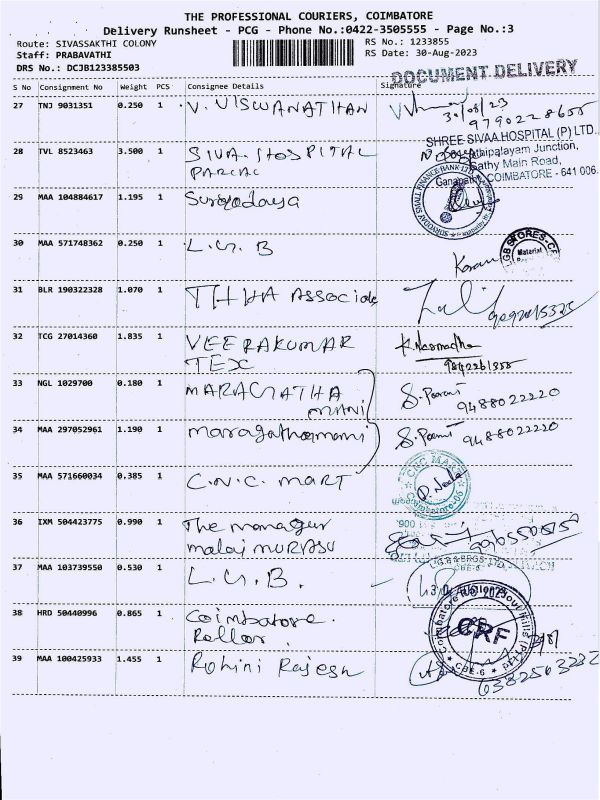 THE PROFESSIONAL COURIERS, COIMBATORE
Delivery Runsheet - PCG - Phone No.:0422-3505555 - Page No.:3
Route: SIVASSAKTHI COLONY
RS No.: 1233855
Staff: PRABAVATHI
RS Date: 30-Aug-2023
DRS No.: DCJB123385503
DOCUMENT DELIVERY
S No Consignment No Weight PCS Consignee Details Signature
27 TNJ 9031351 0.250 1 V. VISWANATHAN
30/08/23
9790228655
SHREE SIVAA HOSPITAL (P) LTD.
28 TVL 8523463 3.500 1 SIVA HOSPITAL
PARCAL
Junction,
Sathy Main Road,
COIMBATORE - 641 006.
29 MAA 104884617 1.195 1 Suryodaya
30 MAA 571748362 0.250 1 L.G.B
31 BLR 190322328 1.070 1 THHA Associate
32 TCG 27014360 1.835 1 VEERAKUMAR
TEX
33 NGL 1029700 0.180 1 MARAGATHA
MANI
9488022220
34 MAA 297052961 1.190 1 maragathamani
9488022220
35 MAA 571660034 0.385 1 C.N.C. MART
36 IXM 504423775 0.990 1 The manager
malai MURASU
37 MAA 103739550 0.530 1 L.G.B.
38 HRD 50440996 0.865 1 Coimbatore
Rollar
CRF
CBE-6
39 MAA 100425933 1.455 1 Rohini Rajesh
6382563232